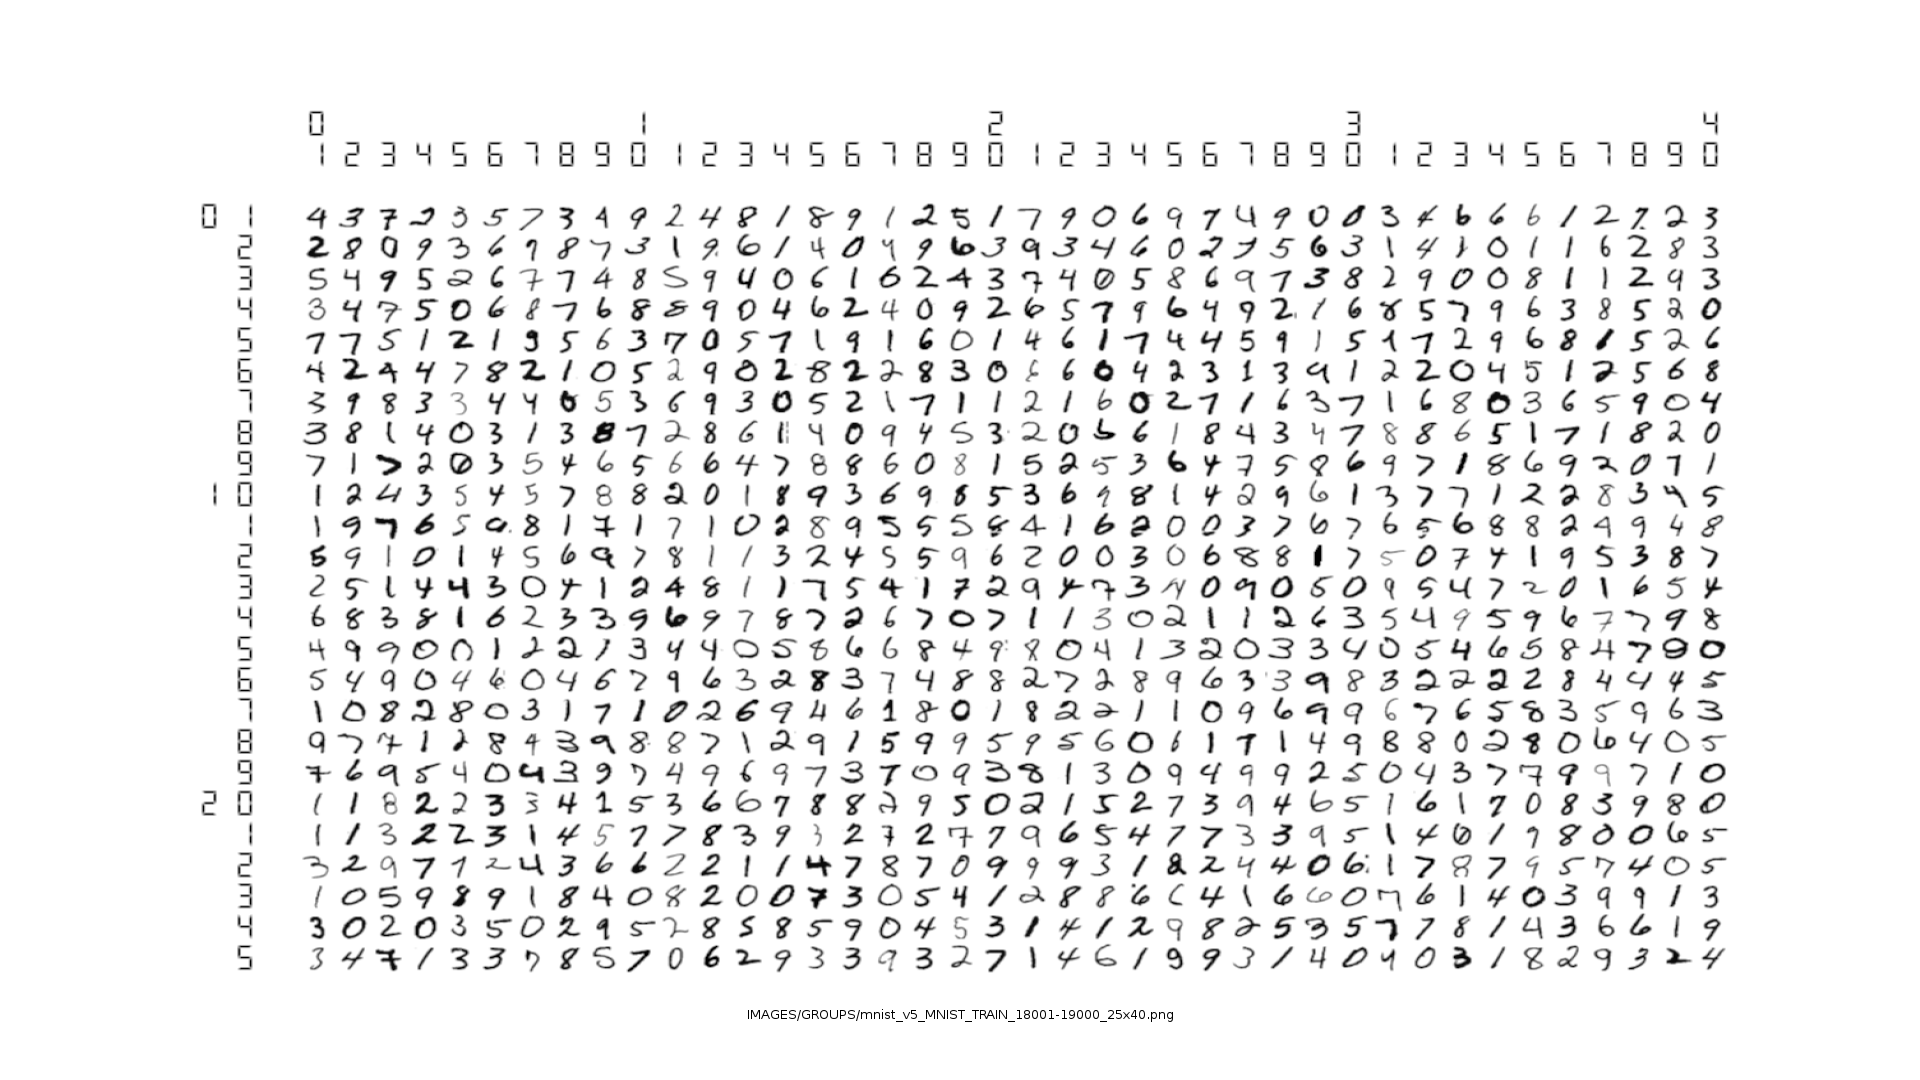 0 1 2 3 4
1 2 3 4 5 6 7 8 9 0 1 2 3 4 5 6 7 8 9 0 1 2 3 4 5 6 7 8 9 0 1 2 3 4 5 6 7 8 9 0
0 1 4 3 7 2 3 5 7 3 9 9 2 4 8 1 8 9 1 2 5 1 7 9 0 6 9 7 4 9 0 0 3 4 6 6 6 1 2 7 2 3
2 2 8 0 9 3 6 9 8 7 3 1 9 6 1 4 0 4 9 6 3 9 3 4 6 0 2 7 5 6 3 1 4 1 0 1 1 6 2 8 3
3 5 4 9 5 2 6 7 7 4 8 5 9 4 0 6 1 6 2 4 3 7 4 0 5 8 6 9 7 3 8 2 9 0 0 8 1 1 2 9 3
4 3 4 7 5 0 6 8 7 6 8 8 9 0 4 6 2 4 0 9 2 6 5 7 9 6 4 9 2 1 6 8 5 7 9 6 3 8 5 2 0
5 7 7 5 1 2 1 9 5 6 3 7 0 5 7 1 9 1 6 0 1 4 6 1 7 4 4 5 9 1 5 1 7 2 9 6 8 1 5 2 6
6 4 2 4 4 7 8 2 1 0 5 2 9 0 2 8 2 2 8 3 0 6 6 0 4 2 3 1 3 9 1 2 2 0 4 5 1 2 5 6 8
7 3 9 8 3 3 4 4 0 5 3 6 9 3 0 5 2 1 7 1 1 2 1 6 0 2 7 1 6 3 7 1 6 8 0 3 6 5 9 0 4
8 3 8 1 4 0 3 1 3 8 7 2 8 6 1 4 0 9 4 5 3 2 0 6 6 1 8 4 3 4 7 8 8 6 5 1 7 1 8 2 0
9 7 1 7 2 0 3 5 4 6 5 6 6 4 7 8 8 6 0 8 1 5 2 5 3 6 4 7 5 8 6 9 7 1 8 6 9 2 0 7 1
1 0 1 2 4 3 5 4 5 7 8 8 2 0 1 8 9 3 6 9 8 5 3 6 9 8 1 4 2 9 6 1 3 7 7 1 2 2 8 3 4 5
1 1 9 7 6 5 0 8 1 7 1 7 1 0 2 8 9 5 5 5 8 4 1 6 2 0 0 3 7 6 7 6 5 6 8 8 2 9 9 4 8
2 5 9 1 0 1 4 5 6 9 7 8 1 1 3 2 4 5 5 9 6 2 0 0 3 0 6 8 8 1 7 5 0 7 4 1 9 5 3 8 7
3 2 5 1 4 4 3 0 4 1 2 4 8 1 1 7 5 4 1 7 2 9 4 7 3 4 0 9 0 5 0 9 5 4 7 2 0 1 6 5 4
4 6 8 3 8 1 6 2 3 3 9 6 9 7 8 7 2 6 7 0 7 1 1 3 0 2 1 1 2 6 3 5 4 9 5 9 6 7 7 9 8
5 4 9 9 0 0 1 2 2 1 3 4 4 0 5 8 6 6 8 4 9 8 0 4 1 3 2 0 3 3 4 0 5 4 6 5 8 4 7 9 0
6 5 4 9 0 4 6 0 4 6 7 9 6 3 2 8 3 7 4 8 8 2 7 2 8 9 6 3 3 9 8 3 2 2 2 2 8 4 4 4 5
7 1 0 8 2 8 0 3 1 7 1 0 2 6 9 4 6 1 8 0 1 8 2 2 1 1 0 9 6 9 9 6 7 6 5 8 3 5 9 6 3
8 9 7 7 1 2 8 4 3 9 8 8 7 1 2 9 1 5 9 9 5 9 5 6 0 6 1 7 1 4 9 8 8 0 2 8 0 6 4 0 5
9 7 6 9 5 4 0 4 3 9 7 4 9 6 9 7 3 7 0 9 3 8 1 3 0 9 4 9 9 2 5 0 4 3 7 7 9 9 7 1 0
2 0 1 1 8 2 2 3 3 4 1 5 3 6 6 7 8 8 2 9 5 0 2 1 5 2 7 3 9 4 6 5 1 6 1 7 0 8 3 9 8 0
1 1 1 3 2 2 3 1 4 5 7 7 8 3 9 3 2 7 2 7 7 9 6 5 4 7 7 3 3 9 5 1 4 6 1 9 8 0 0 6 5
2 3 2 9 7 7 2 4 3 6 6 2 2 1 1 4 7 8 7 0 9 9 9 3 1 8 2 4 4 0 6 1 7 8 7 9 5 7 4 0 5
3 1 0 5 9 8 9 1 8 4 0 8 2 0 0 7 3 0 5 4 1 2 8 8 6 6 4 1 6 6 0 7 6 1 4 0 3 9 9 1 3
4 3 0 2 0 3 5 0 2 9 5 2 8 5 8 5 9 0 4 5 3 1 4 1 2 9 8 2 5 3 5 7 7 8 1 4 3 6 6 1 9
5 3 4 7 1 3 3 7 8 5 7 0 6 2 9 3 3 9 3 2 7 1 4 6 1 9 9 3 1 4 0 4 0 3 1 8 2 9 3 2 4
IMAGES/GROUPS/mnist_v5_MNIST_TRAIN_18001-19000_25x40.png